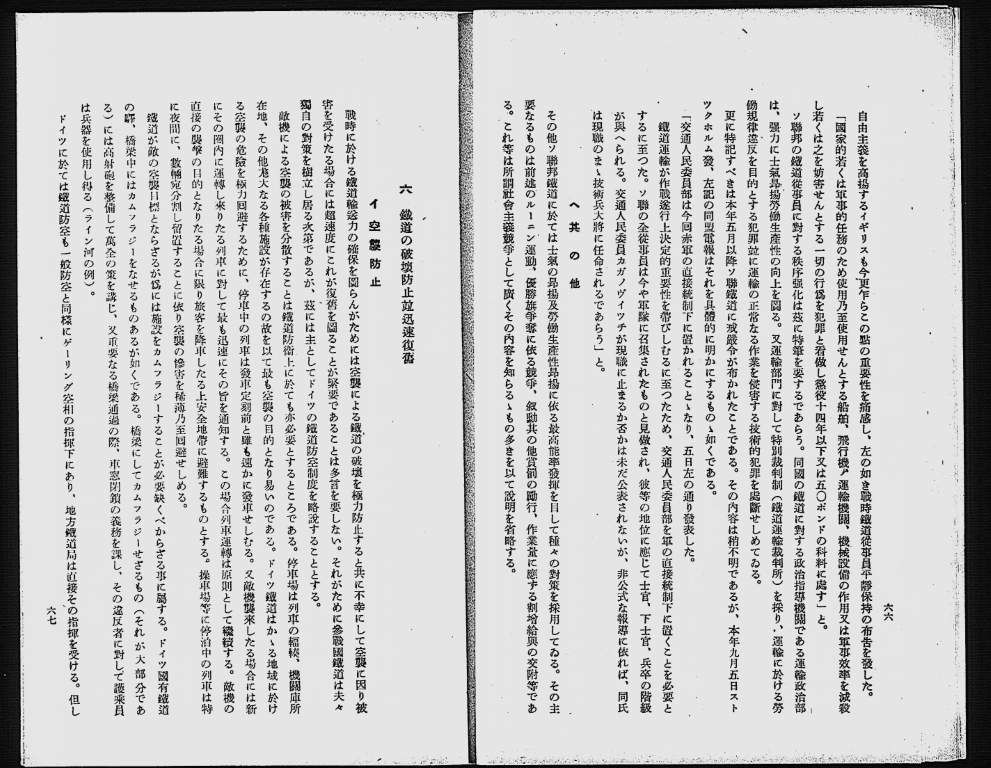 自由主義を高揚するイギリスも今更乍らこの點の重要性を痛感し、左の如き戰時鐵道從事員平靜保持の布告を發した。
「國家的若くは軍事的任務のため使用乃至使用せんとする船舶、飛行機、運輸機關、機械設備の作用又は軍事效率を減殺
し若くは之を妨害せんとする一切の行爲を犯罪と看做し懲役十四年以下又は五〇ポンドの科料に處す」と。
ソ聯邦の鐵道從事員に對する秩序强化は玆に特筆を要するであらう。同國の鐵道に對する政治指導機關である運輸政治部
は、强力に士氣昂揚勞働生產性の向上を圖る。又運輸部門に對して特別裁判制(鐵道運輸裁判所)を採り、運輸に於ける勞
働規律違反を目的とする犯罪並に運輸の正常なる作業を侵害する技術的犯罪を處斷せしめてゐる。
更に特記すべきは本年五月以降ソ聯鐵道に戒嚴令が布かれたことである。その內容は稍不明であるが、本年九月五日スト
ックホルム發、左記の同盟電報はそれを具體的に明かにするものゝ如くである。
「交通人民委員部は今回赤軍の直接統制下に置かれることゝなり、五日左の通り發表した。
鐵道運輸が作戰遂行上決定的重要性を帶びしむるに至つたため、交通人民委員部を軍の直接統制下に置くことを必要と
するに至つた。ソ聯の全從事員は今や軍隊に召集されたものと見做され、彼等の地位に應じて士官、下士官、兵卒の階級
が與へられる。交通人民委員カガノヴィッチが現職に止まるか否かは未だ公表されないが、非公式な報導に依れば、同氏
は現職のまゝ技術兵大將に任命されるであらう」と。
ヘ 其の他
その他ソ聯邦鐵道に於ては士氣の昂揚及勞働生產性昂揚に依る最高能率發揮を目して種々の對策を採用してゐる。その主
要なるものは前述のルーニン運動、優勝旗爭奪に依る競爭、敍勳其の他賞罰の勵行、作業量に應ずる割增給與の交附等であ
る。これ等は所謂社會主義競爭として廣くその內容を知らるゝもの多きを以て說明を省略する。
六六
六 鐵道の破壞防止竝迅速復舊
イ 空襲防止
戰時に於ける鐵道輸送力の確保を圖らんがためには空襲による鐵道の破壞を極力防止すると共に不幸にして空襲に因り被
害を受けたる場合には超速度にこれが復舊を圖ることが緊要であることは多言を要しない。それがために參戰國鐵道は夫々
獨自の對策を樹立し居る次第であるが、玆には主としてドイツの鐵道防空制度を略說することとする。
敵機による空襲の被害を分散することは鐵道防衞上に於ても亦必要とするところである。停車場は列車の輻輳、機關庫所
在地、その他尨大なる各種施設が存在するの故を以て最も空襲の目的となり易いのである。ドイツ鐵道はかゝる地域に於け
る空襲の危險を極力回避するために、停車中の列車は發車定刻前と雖も速かに發車せしむる。又敵機襲來したる場合には新
にその圈內に運轉し來りたる列車に對して最も迅速にその旨を通知する。この場合列車運轉は原則として繼續する。敵機の
直接の襲擊の目的となりたる場合に限り旅客を降車したる上安全地帶に避難するものとする。操車場等に停泊中の列車は特
に夜間に、數輛宛分割し留置することに依り空襲の慘害を稀薄乃至回避せしめる。
鐵道が敵の空襲目標とならざるが爲には施設をカムフラジーすることが必要缺くべからざる事に屬する。ドイツ國有鐵道
の驛、橋梁中にはカムフラジーをなせるものあるが如くである。橋梁にしてカムフラジーせざるもの(それが大部分であ
る)には高射砲を整備して萬全の策を講じ、又重要なる橋梁通過の際、車窓閉鎖の義務を課し、その違反者に對して護乘員
は兵器を使用し得る(ライン河の例)。
ドイツに於ては鐵道防空も一般防空と同樣にゲーリング空相の指揮下にあり、地方鐵道局は直接その指揮を受ける。但し
六七